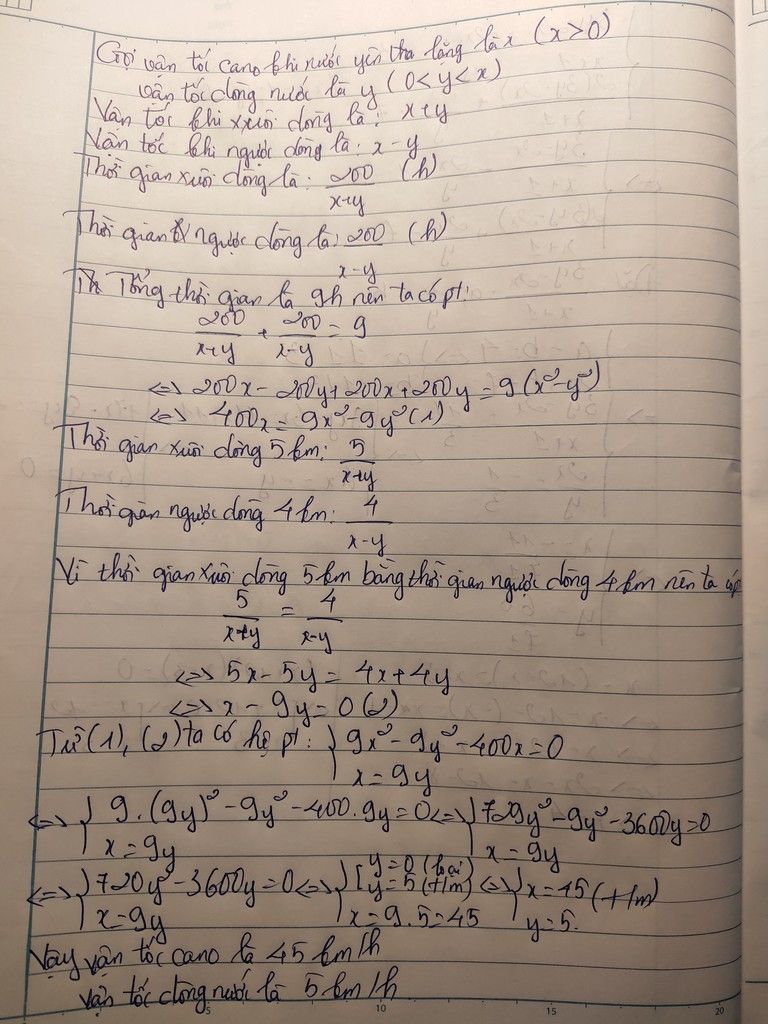 Gọi vận tốc cano khi nước yên tĩnh lặng là x (x>0)
vận tốc dòng nước là y (0<y<x)
Vận tốc khi xuôi dòng là: x+y
Vận tốc khi ngược dòng là: x-y
Thời gian xuôi dòng là: 200/(x+y) (h)
Thời gian ngược dòng là: 200/(x-y) (h)
Tổng thời gian là 9h nên ta có pt:
200/(x+y) + 200/(x-y) = 9
<=> 200x - 200y + 200x + 200y = 9(x²-y²)
<=> 400x = 9x² - 9y² (1)
Thời gian xuôi dòng 5km: 5/(x+y)
Thời gian ngược dòng 4km: 4/(x-y)
Vì thời gian xuôi dòng 5km bằng thời gian ngược dòng 4km nên ta có
5/(x+y) = 4/(x-y)
<=> 5x - 5y = 4x + 4y
<=> x - 9y = 0 (2)
Từ (1), (2) ta có hệ pt: { 9x² - 9y² - 400x = 0
x = 9y
<=> { 9.(9y)² - 9y² - 400.9y = 0 <=> { 729y² - 9y² - 3600y = 0
x = 9y x = 9y
<=> { 720y² - 3600y = 0 <=> { [ y = 0 (loại) y = 5 (t/m) <=> { x = 45 (t/m)
x = 9y x = 9.5 = 45 y = 5.
Vậy vận tốc cano là 45 km/h
vận tốc dòng nước là 5 km/h
5 10 15 20